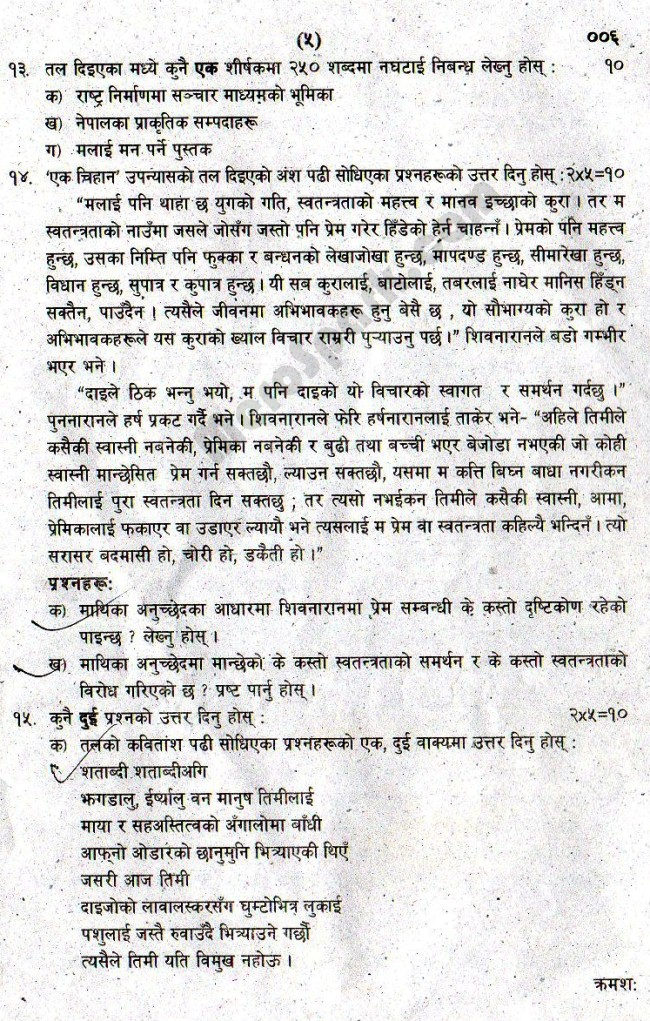 (५)
००६
१३. तल दिइएका मध्ये कुनै एक शीर्षकमा २५० शब्दमा नघटाई निबन्ध लेख्नु होस् : १०
क) राष्ट्र निर्माणमा सञ्चार माध्यमको भूमिका
ख) नेपालका प्राकृतिक सम्पदाहरू
ग) मलाई मन पर्ने पुस्तक
१४. ‘एक चिहान’ उपन्यासको तल दिइएको अंश पढी सोधिएका प्रश्नहरूको उत्तर दिनु होस् : २x५=१०
“मलाई पनि थाहा छ युगको गति, स्वतन्त्रताको महत्त्व र मानव इच्छाको कुरा । तर म
स्वतन्त्रताको नाउँमा जसले जोसँग जस्तो पनि प्रेम गरेर हिँडेको हेर्न चाहन्नँ । प्रेमको पनि महत्त्व
हुन्छ, उसका निम्ति पनि फुक्का र बन्धनको लेखाजोखा हुन्छ, मापदण्ड हुन्छ, सीमारेखा हुन्छ,
विधान हुन्छ, सुपात्र र कुपात्र हुन्छ । यी सब कुरालाई, घाटोलाई, तबरलाई नाघेर मानिस हिँड्न
सक्तैन, पाउँदैन । त्यसैले जीवनमा अभिभावकहरू हुनु बेसै छ , यो सौभाग्यको कुरा हो र
अभिभावकहरूले यस कुराको ख्याल विचार राम्ररी पुऱ्याउनु पर्छ ।” शिवनारानले बडो गम्भीर
भएर भने ।
“दाइले ठिक भन्नु भयो, म पनि दाइको यो विचारको स्वागत र समर्थन गर्दछु ।”
पुननारानले हर्ष प्रकट गर्दै भने । शिवनारानले फेरि हर्षनारानलाई ताकेर भने- “अहिले तिमीले
कसैकी स्वास्नी नबनेकी, प्रेमिका नबनेकी र बुढी तथा बच्ची भएर बेजोडा नभएकी जो कोही
स्वास्नी मान्छेसित प्रेम गर्न सक्तछौ, ल्याउन सक्तछौ, यसमा म कत्ति बिघ्न बाधा नगरीकन
तिमीलाई पुरा स्वतन्त्रता दिन सक्तछु ; तर त्यसो नभईकन तिमीले कसैकी स्वास्नी, आमा,
प्रेमिकालाई फकाएर वा उडाएर ल्यायौ भने त्यसलाई म प्रेम वा स्वतन्त्रता कहिल्यै भन्दिनँ । त्यो
सरासर बदमासी हो, चोरी हो, डकैती हो ।”
प्रश्नहरू:
क) माथिका अनुच्छेदका आधारमा शिवनारानमा प्रेम सम्बन्धी के कस्तो दृष्टिकोण रहेको
पाइन्छ ? लेख्नु होस् ।
ख) माथिका अनुच्छेदमा मान्छेको के कस्तो स्वतन्त्रताको समर्थन र के कस्तो स्वतन्त्रताको
विरोध गरिएको छ ? प्रष्ट पार्नु होस् ।
१५. कुनै दुई प्रश्नको उत्तर दिनु होस् : २x५=१०
क) तलको कवितांश पढी सोधिएका प्रश्नहरूको एक, दुई वाक्यमा उत्तर दिनु होस् :
शताब्दी शताब्दीअगि
झगडालु, ईर्ष्यालु वन मानुष तिमीलाई
माया र सहअस्तित्वको अँगालोमा बाँधी
आफ्नो ओडारको छानुमुनि भित्र्याएकी थिएँ
जसरी आज तिमी
दाइजोको लावालस्करसँग घुम्टोभित्र लुकाई
पशुलाई जस्तै रुवाउँदै भित्र्याउने गर्छौ
त्यसैले तिमी यति विमुख नहोऊ ।
क्रमश: